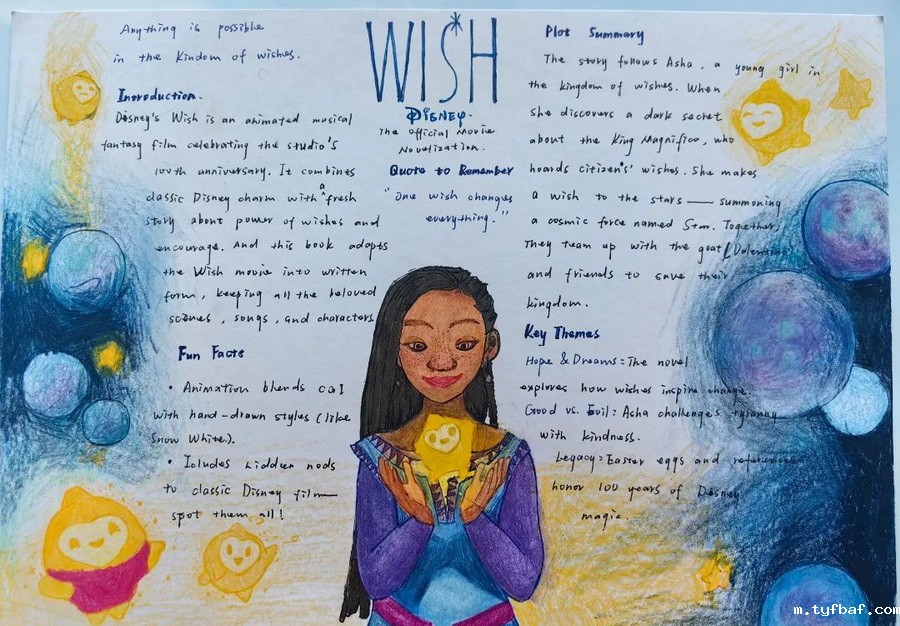 Anything is possible
in the Kindom of wishes.
Introduction.
Disney's Wish is an animated musical
fantasy film celebrating the studio's
100th anniversary. It combines
classic Disney charm with a fresh
story about power of wishes and
encourage. And this book adapts
the Wish movie into written
form, keeping all the beloved
scenes, songs, and charactors
Fun Facts
• Animation blends CGI
with hand-drawn styles (like
Snow White).
• Icludes hidden nods
to classic Disney film—
spot them all!
WISH
Disney.
The official Movie
Novelization.
Quote to Remember
"One wish changes
everything."
Plot Summary
The story follows Asha, a young girl in
the kingdom of wishes. When
She discovers a dark secret
about the King Magnifico, who
hoards citizens' wishes. She makes
a wish to the stars — summoning
a cosmic force named Star. Together,
They team up with the goat (Valentino
and friends to save their
kingdom.
Key Themes
Hope & Dreams: The novel
explores how wishes inspire change.
Good vs. Evil: Asha challenges tyranny
with kindness.
Legacy: Easter eggs and references
honor 100 years of Disney
magic.
m.tyfbaf.com